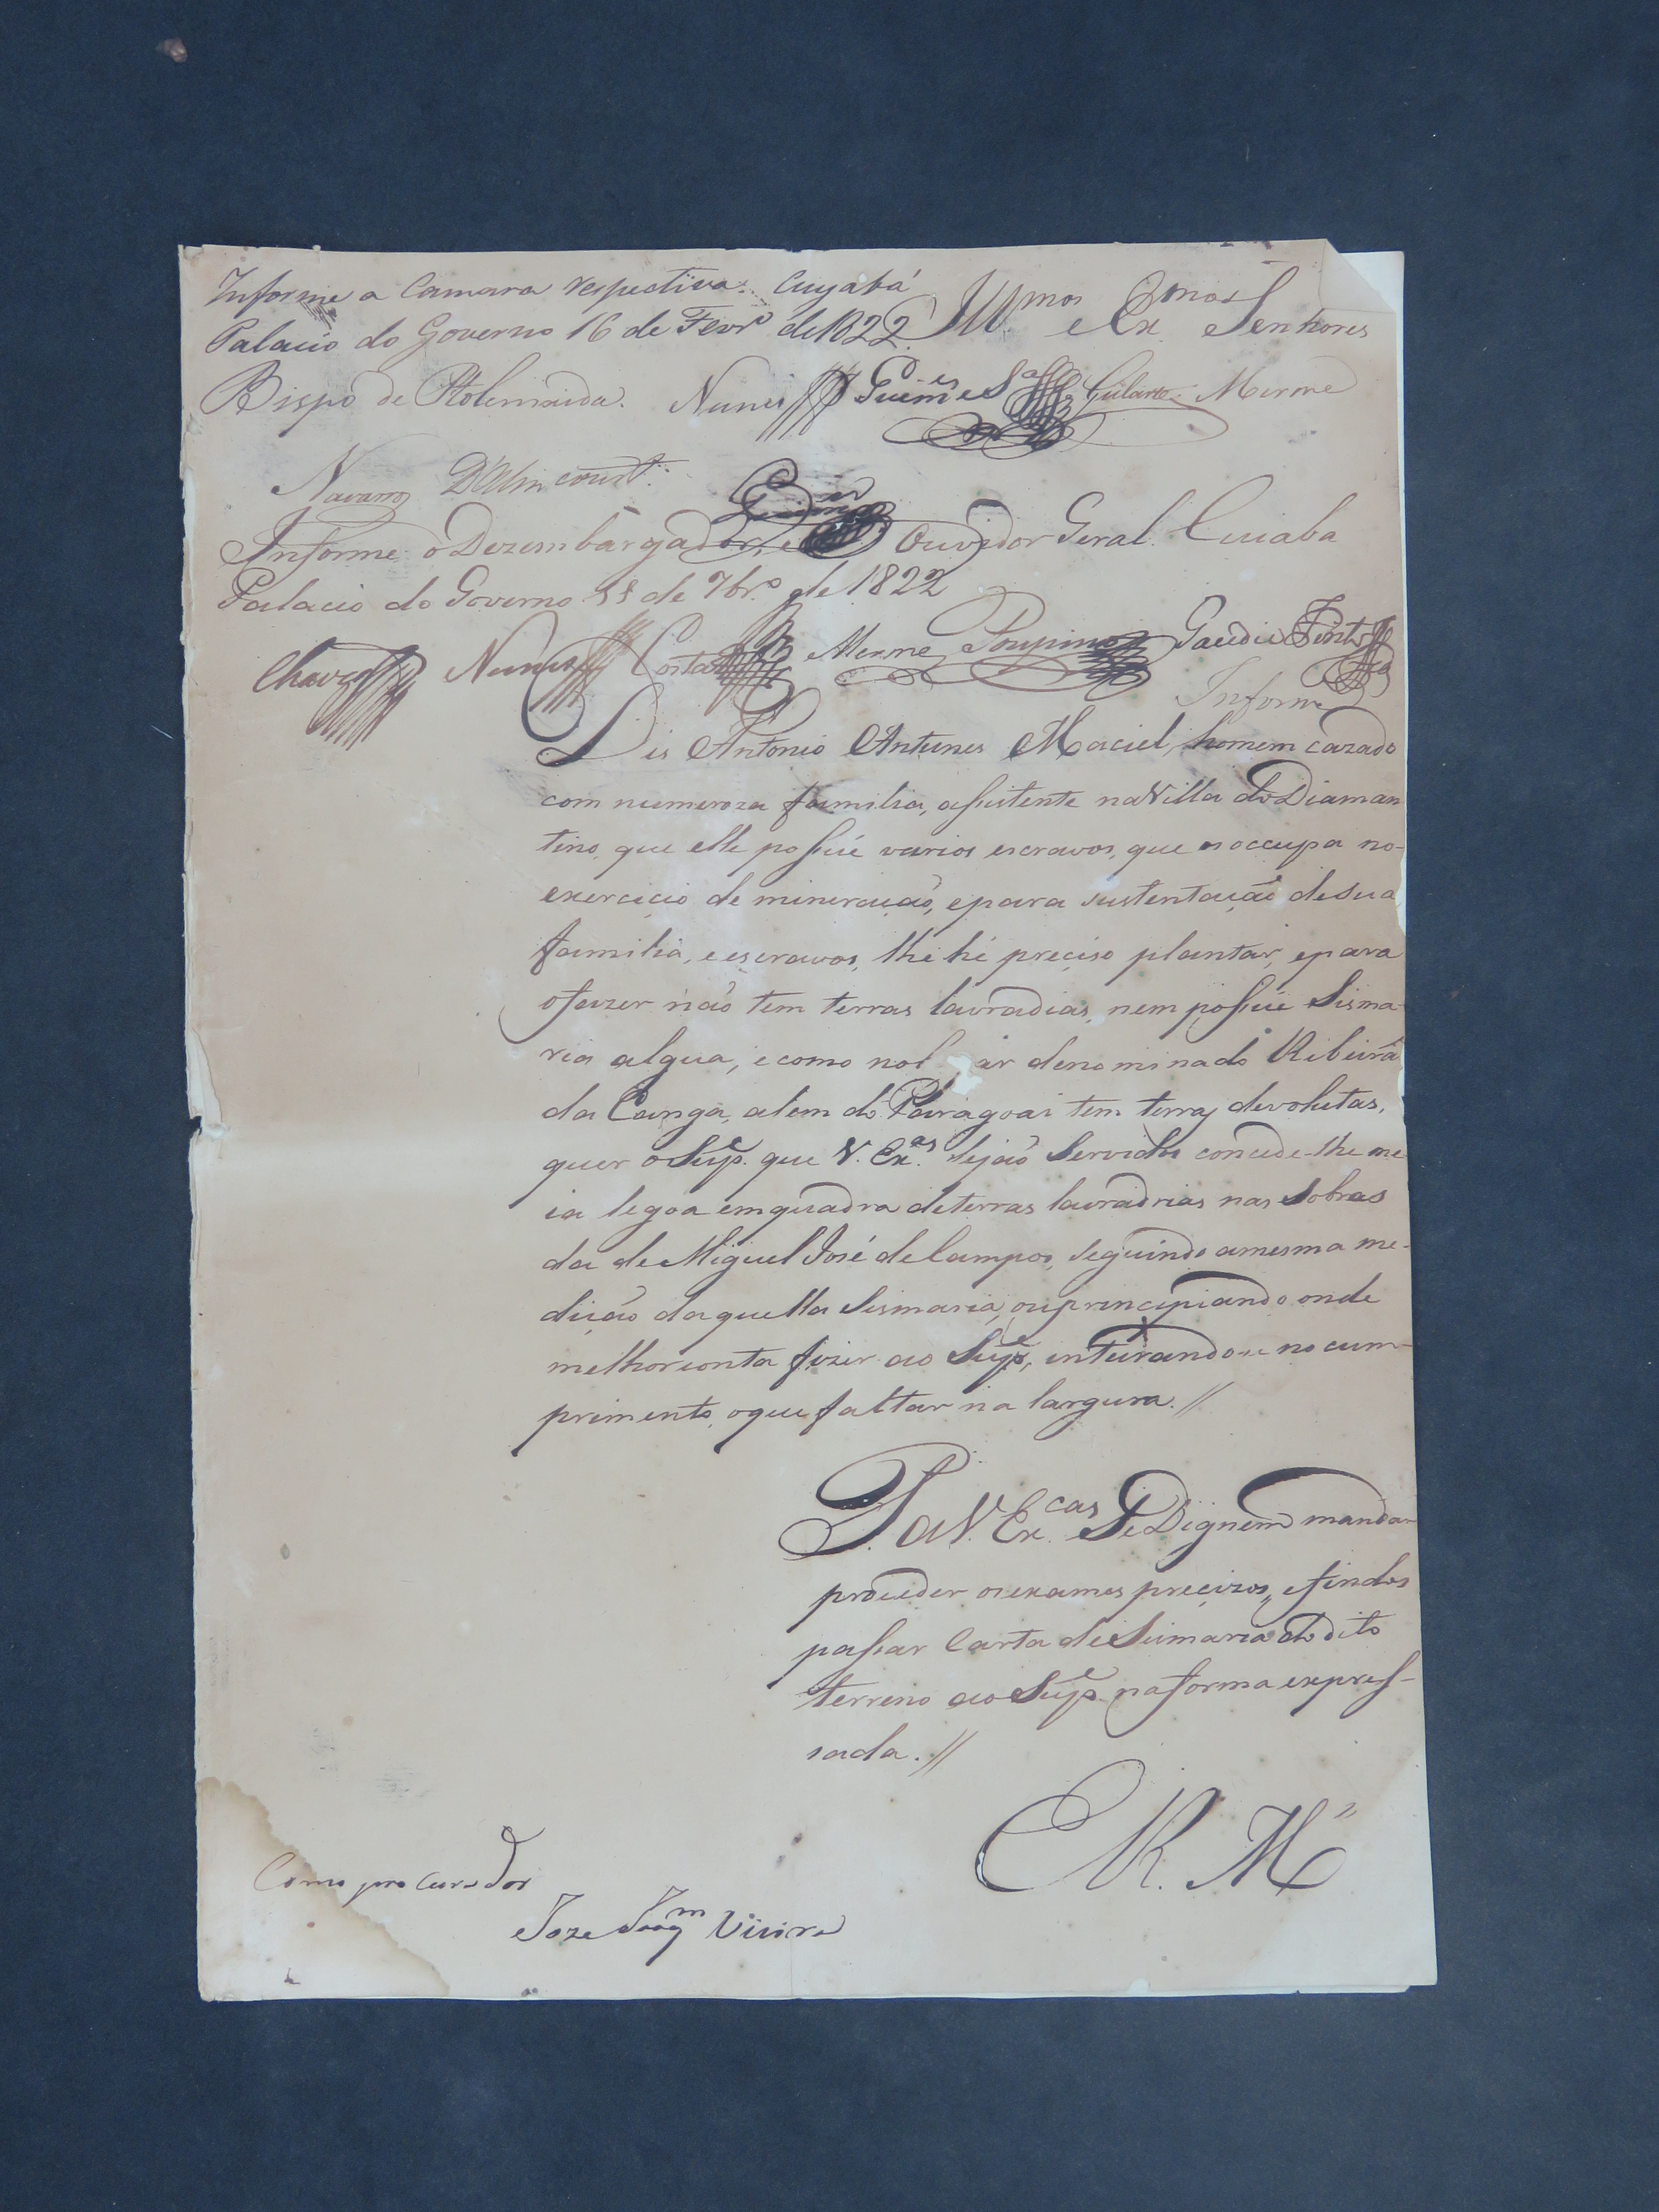 Informe a Camara respectiva. Cuyabá
Palacio do Governo 16 de Fevr.º de 1822.
Ill.mos e Ex.mos Senhores
Bispo de Ptolemaida. Nunes Guim.es e S.a Gularte. Merme
Navarro D'Alincourt.
Informe o Dezembargador, e Ouvidor Geral. Cuiaba
Palacio do Governo de 7br.º de 1822
Chaves Nunes Costa Merme Poupino Gaudie
Informe
Dis Antonio Antunes Maciel, homem cazado
com numeroza familia, assistente na Villa do Diaman
tino, que elle possúe varios escravos, que os occupa no
exercicio de mineração, e para sustentação de sua
familia, e escravos, lhe hé preciso plantar, e para
o fazer não tem terras lavradias, nem possúe Sisma
ria algua, e como no l ar denominado Ribeirã
da Canga, alem do Paragoai tem terras devolutas,
quer o Sup.e que V. Ex.as sejão Servidos concede-lhe me
ia legoa em quadra de terras lavradrias nas Sobras
da de Miguel José de Campos, seguindo a mesma me-
dição daquella Sismaria, ou principiando onde
melhor conta fizer ao Sup.e, inteirando-se no cum-
primento, o que faltar na largura. //
P. a V. Ex.cas Se Dignem mandar
proceder os exames precizos, e findos
passar Carta de Sismaria do dito
terreno ao Sup.e na forma expres-
sada. //
E R. M.
Como procurador
Joze Joaq.m Vieira